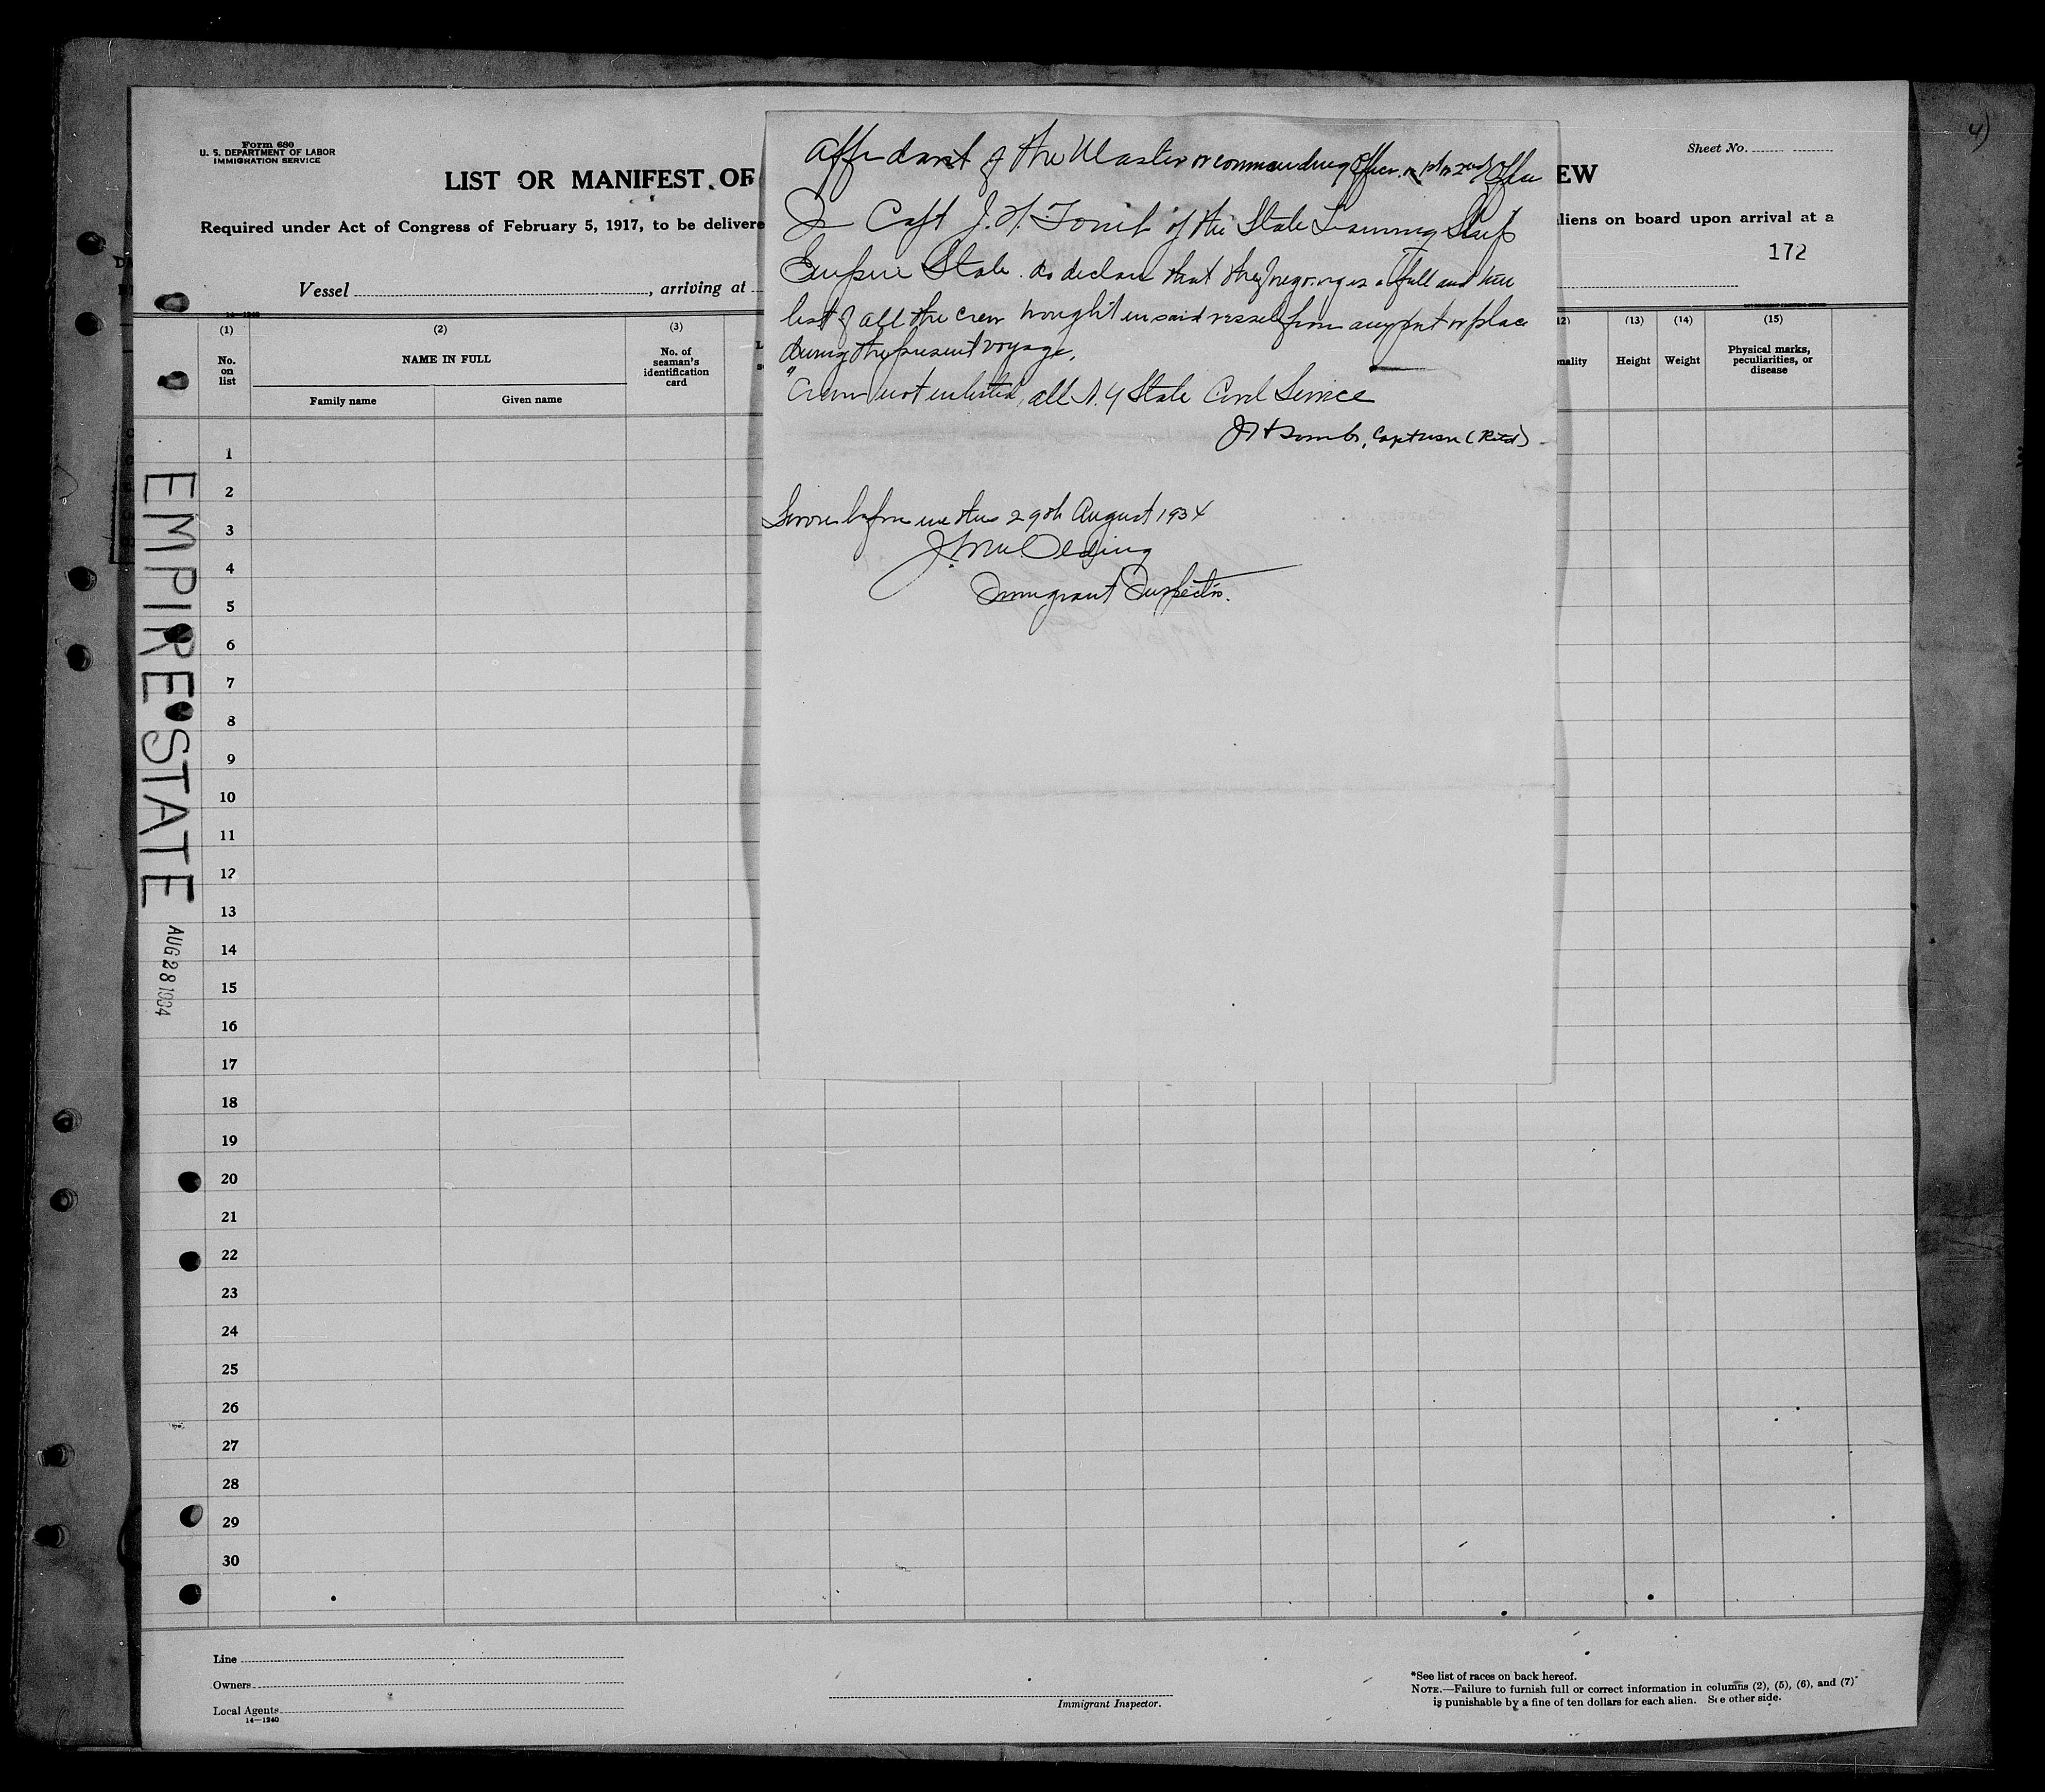 Form 680
U. S. DEPARTMENT OF LABOR
IMMIGRATION SERVICE
LIST OR MANIFEST OF
EW
Sheet No.
4)
Required under Act of Congress of February 5, 1917, to be delivere
aliens on board upon arrival at a
172
Vessel , arriving at
Affidavit of the Master or commanding Officer, or 1st or 2nd Officer
I Capt J. H. Tomb of the State Training Ship
Empire State do declare that the foregoing is a full and true
list of all the crew brought in said vessel from any port or place
during the present voyage.
"Crew not enlisted, all N.Y State Civil Service
J H Tomb, Capt USN (Ret'd)
Sworn before me this 29th August 1934
Immigrant Inspector.
14-1240
(1)
(2)
(3)
12)
(13)
(14)
(15)
No. on list
NAME IN FULL
Family name
Given name
No. of seaman's identification card
nality
Height
Weight
Physical marks, peculiarities, or disease
1
2
3
4
5
6
7
8
9
10
11
12
13
14
15
16
17
18
19
20
21
22
23
24
25
26
27
28
29
30
EMPIRE STATE
AUG 28 1934
Line
Owners
Local Agents
14-1240
Immigrant Inspector.
*See list of races on back hereof.
NOTE.—Failure to furnish full or correct information in columns (2), (5), (6), and (7)
is punishable by a fine of ten dollars for each alien. See other side.